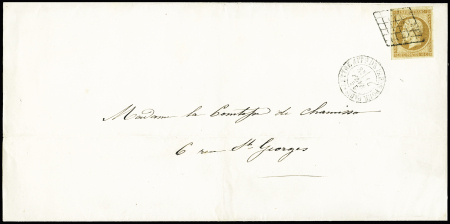 Madame la Comtesse de Chamisso
6 rue St. Georges